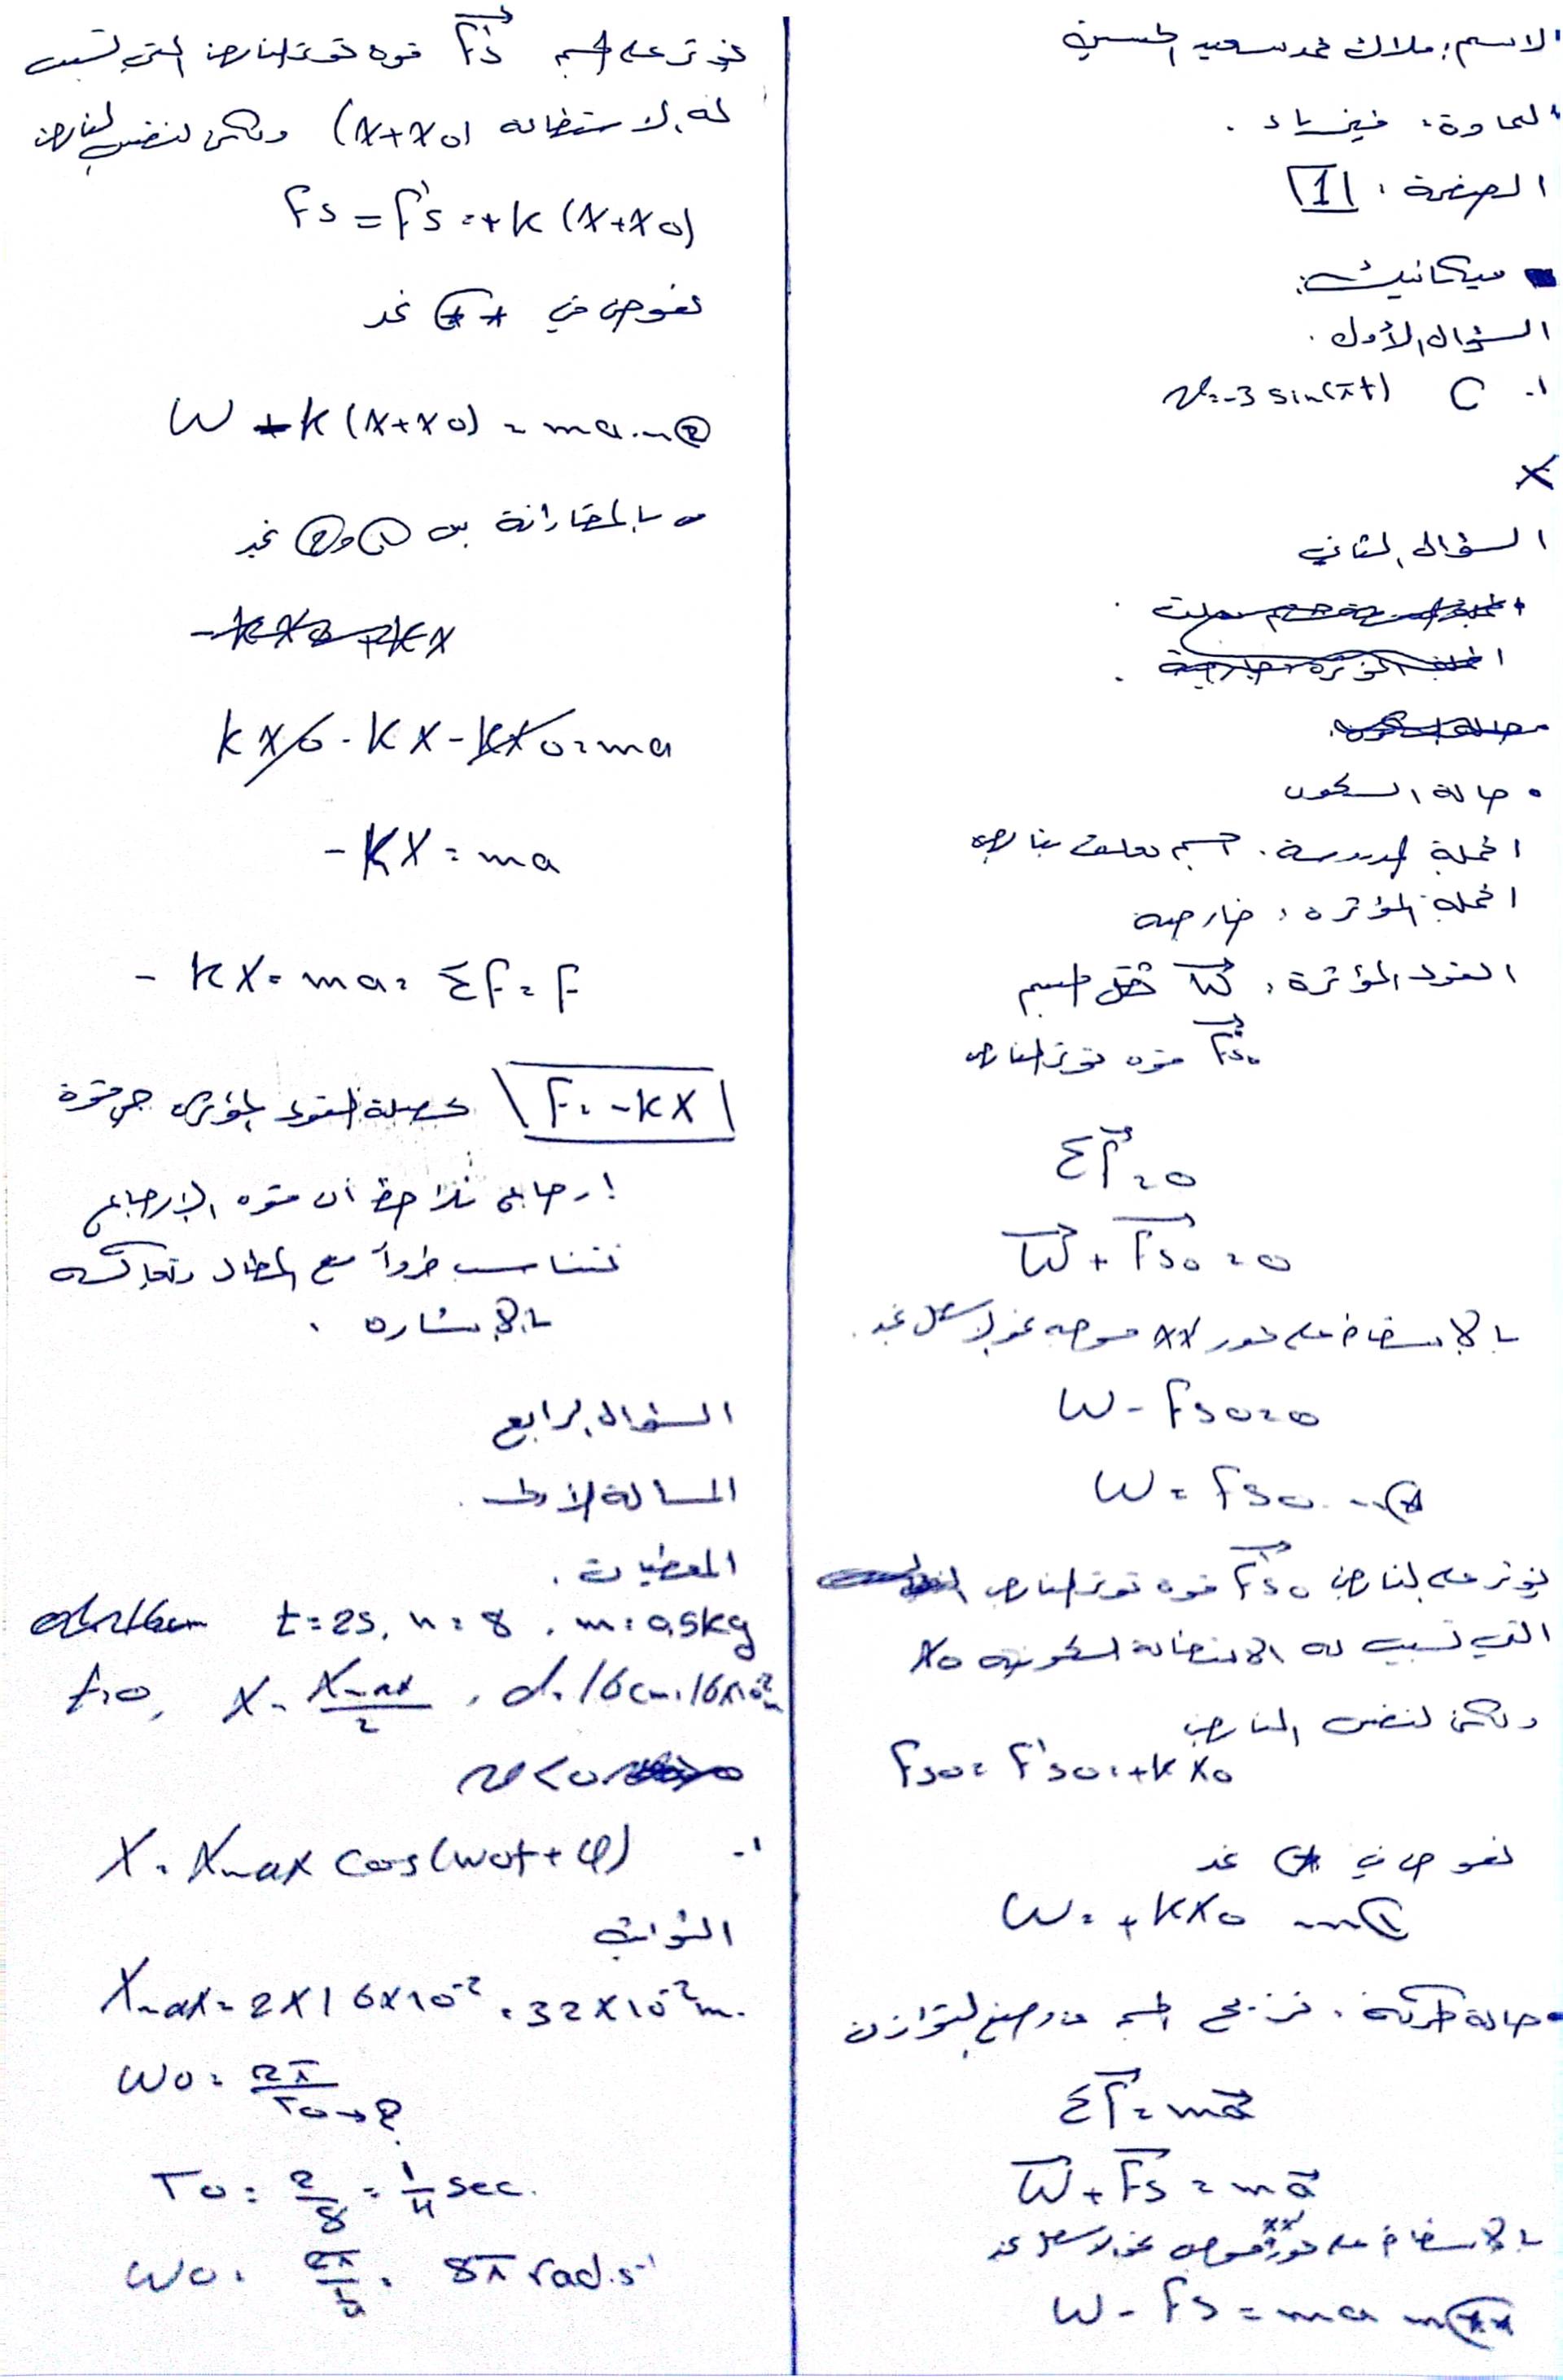 الاسم: ملاك محمد سعيد الحسين
المادة: فيزياء .
الصفحة: 1
ميكانيك:
السؤال الأول .
1- C v=-3 sin(πt)
السؤال الثاني
حالة السكون
الجملة المدروسة: جسم معلق بنابض
الجملة المؤثرة: خارجية
القوى المؤثرة: W ثقل الجسم
Fs0 قوة توتر النابض
ΣF=0
W + Fs0 = 0
بالإسقاط على محور xx' موجه نحو الأسفل نجد .
W - Fs0=0
W = Fs0 ...*
يؤثر على النابض F's0 قوة توتر النابض
التي تسبب له الاستطالة السكونية x0
ولكن لنفس النابض
Fs0= F's0=+k x0
نعوض في * نجد
W = +kx0 ...①
حالة الحركة: نزيح الجسم عن وضع التوازن
ΣF=ma
W + Fs = ma
بالإسقاط على محور xx' موجه نحو الأسفل نجد
W - Fs = ma ...**
يؤثر على الجسم F's قوة توتر النابض التي تسبب
له الاستطالة (x+x0) ولكن لنفس النابض
Fs = F's =+k (x+x0)
نعوض في ** نجد
W -k (x+x0) = ma ...②
بالمقارنة بين ① و② نجد
-kx0+kx
kx0 - kx - kx0=ma
-kx = ma
-kx = ma = ΣF = F
F = -kx محصلة القوى المؤثرة هي قوة
إرجاع نلاحظ أن قوة الإرجاع
تتناسب طرداً مع المطال وتعاكسه
بالإشارة .
السؤال الرابع
المسألة الأولى .
المعطيات .
t=2s, n=8 , m=0.5kg
t=0, x= Xmax/2 , d=16cm=16x10⁻²m
v<0
1- X= Xmax cos(ω0t+φ)
الثوابت
Xmax= 2x16x10⁻² =32x10⁻²m.
ω0= 2π/T0→?
T0= 2/8 = 1/4 sec.
ω0= 2π/(1/4) = 8π rad.s⁻¹